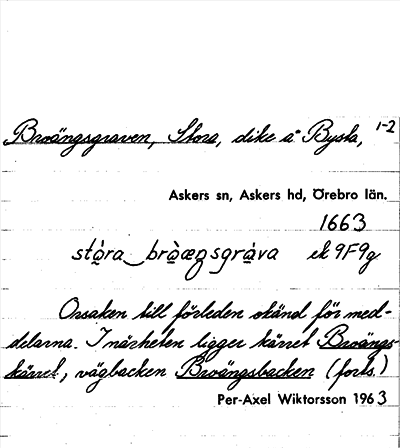 Broängsgraven, Stora, dike å Bysta, 1-2
Askers sn, Askers hd, Örebro län.
1663
stóra bròæŋsgràva ek 9F9g
Orsaken till förleden okänd för med-
delarna. I närheten ligger kärret Broängs-
kärret, vägbacken Broängsbacken (forts.)
Per-Axel Wiktorsson 1963